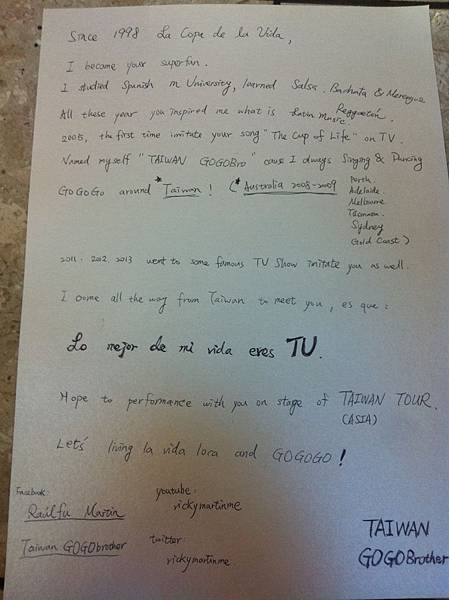 Since 1998 La Copa de la Vida,
I became your superfan.
I studied Spanish in University, learned Salsa. Bachata & Merengue
All these year you inspired me what is Latin Music. Reggaetón.
2005, the first time imitate your song "The Cup of Life" on TV.
Named myself "TAIWAN GOGOBro" cause I always Singing & Dancing
GoGoGo around *Taiwan! (*Australia 2008-2009 Perth.
Adelaide.
Melbourne
Tasmania.
Sydney
Gold Coast)
2011. 2012. 2013 went to some famous TV Show imitate you as well.
I come all the way from Taiwan to meet you, es que:
Lo mejor de mi vida eres TU.
Hope to performance with you on stage of TAIWAN TOUR.
(ASIA)
Let's living la vida lora and GOGOGO!
Facebook:
Raúlfu Martin
Taiwan GOGObrother
youtube:
vickymartinme
twitter:
vickymartinme
TAIWAN
GOGOBrother